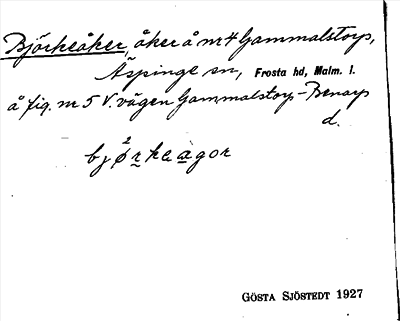 Björkeåker, åker å nr 4 Gammalstorp,
Äspinge sn, Frosta hd, Malm. l.
å fig. nr 5 V. vägen Gammalstorp-Benarp
d.
bjørkaagor
GÖSTA SJÖSTEDT 1927